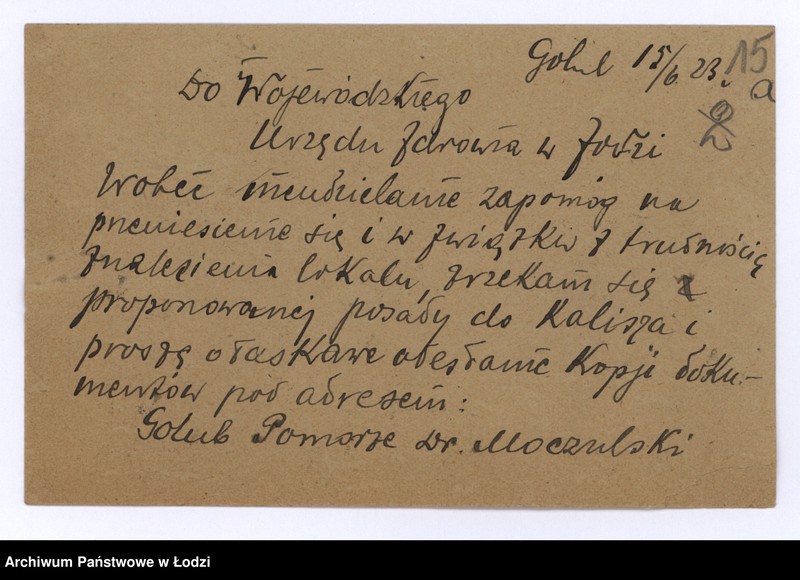 Golub 15/6 23. 15
a
Do Wojewódzkiego
Urzędu Zdrowia w Łodzi
Wobec nieudzielanie zapomóg na
przeniesienie się i w związku z trudnością
znalezienia lokalu, zrzekam się z
proponowanej posady do Kalisza i
proszę o łaskawe odesłanie kopji doku-
mentów pod adresem:
Golub Pomorze Dr. Moczulski
Archiwum Państwowe w Łodzi